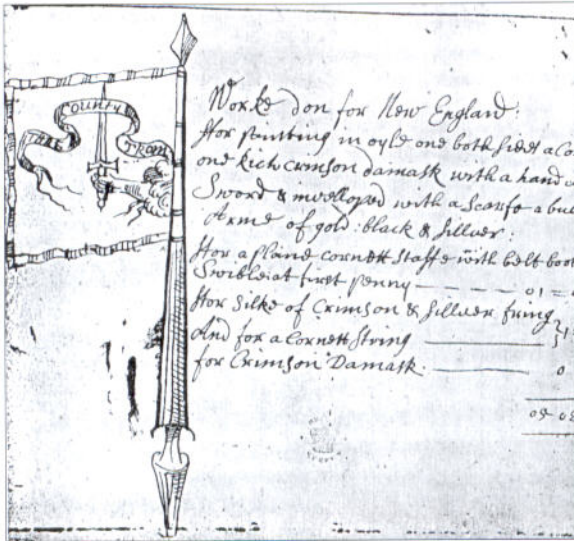 THREE COUNTY TROOP
Worke don for New England:
ffor painting in oyle one both sides a Co
one Rich crimson damask with a hand a
Sword & invelloped with a Scarfe a bu
Arme of gold: black & sillver:
ffor a plaine cornett Staffe with belt boo
Swible at first penny 01 =
ffor Silke of Crimson & sillver fring
And for a Cornett String
for Crimson Damask: 0
05 05